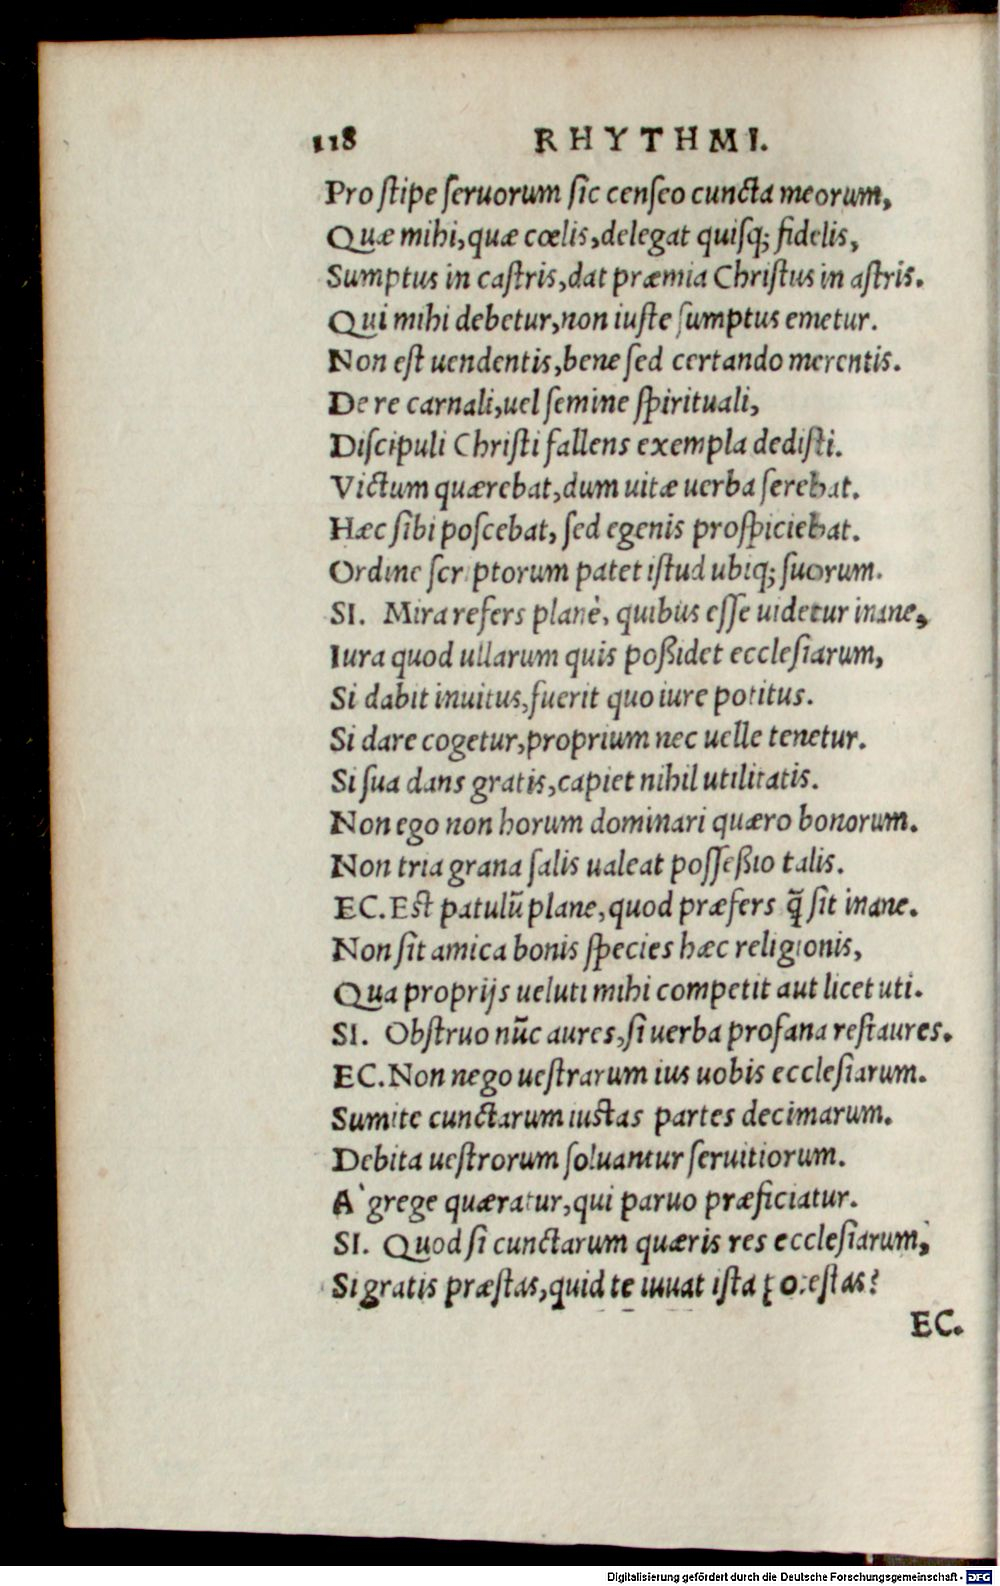 118 RHYTHMI.
Pro stipe seruorum sic censeo cuncta meorum,
Quæ mihi, quæ cœlis, delegat quisq; fidelis,
Sumptus in castris, dat præmia Christus in astris.
Qui mihi debetur, non iuste sumptus emetur.
Non est uendentis, bene sed certando merentis.
De re carnali, uel semine spirituali,
Discipuli Christi fallens exempla dedisti.
Victum quærebat, dum uitæ uerba serebat.
Hæc sibi poscebat, sed egenis prospiciebat.
Ordine scriptorum patet istud ubiq; suorum.
SI. Mira refers planè, quibus esse uidetur inane,
Iura quod ullarum quis poßidet ecclesiarum,
Si dabit inuitus, fuerit quo iure potitus.
Si dare cogetur, proprium nec uelle tenetur.
Si sua dans gratis, capiet nihil utilitatis.
Non ego non horum dominari quæro bonorum.
Non tria grana salis ualeat posseßio talis.
EC. Est patulū plane, quod præfers q̄ sit inane.
Non sit amica bonis species hæc religionis,
Qua proprijs ueluti mihi competit aut licet uti.
SI. Obstruo nūc aures, si uerba profana restaures.
EC. Non nego uestrarum ius uobis ecclesiarum.
Sumite cunctarum iustas partes decimarum.
Debita uestrorum soluantur seruitiorum.
A` grege quæratur, qui paruo præficiatur.
SI. Quod si cunctarum quæris res ecclesiarum,
Si gratis præstas, quid te iuuat ista potestas?
EC.
Digitalisierung gefördert durch die Deutsche Forschungsgemeinschaft - DFG